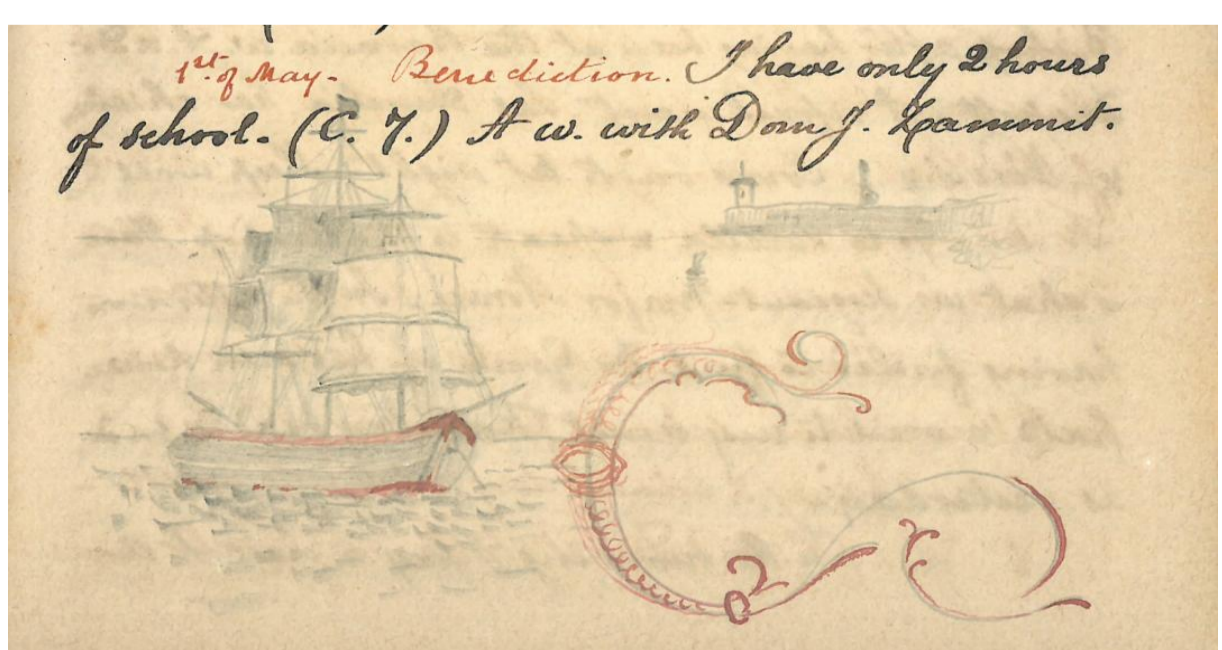 1st of May. Benediction. I have only 2 hours
of school. (C. 7.) A w. with Dom J. Zammit.